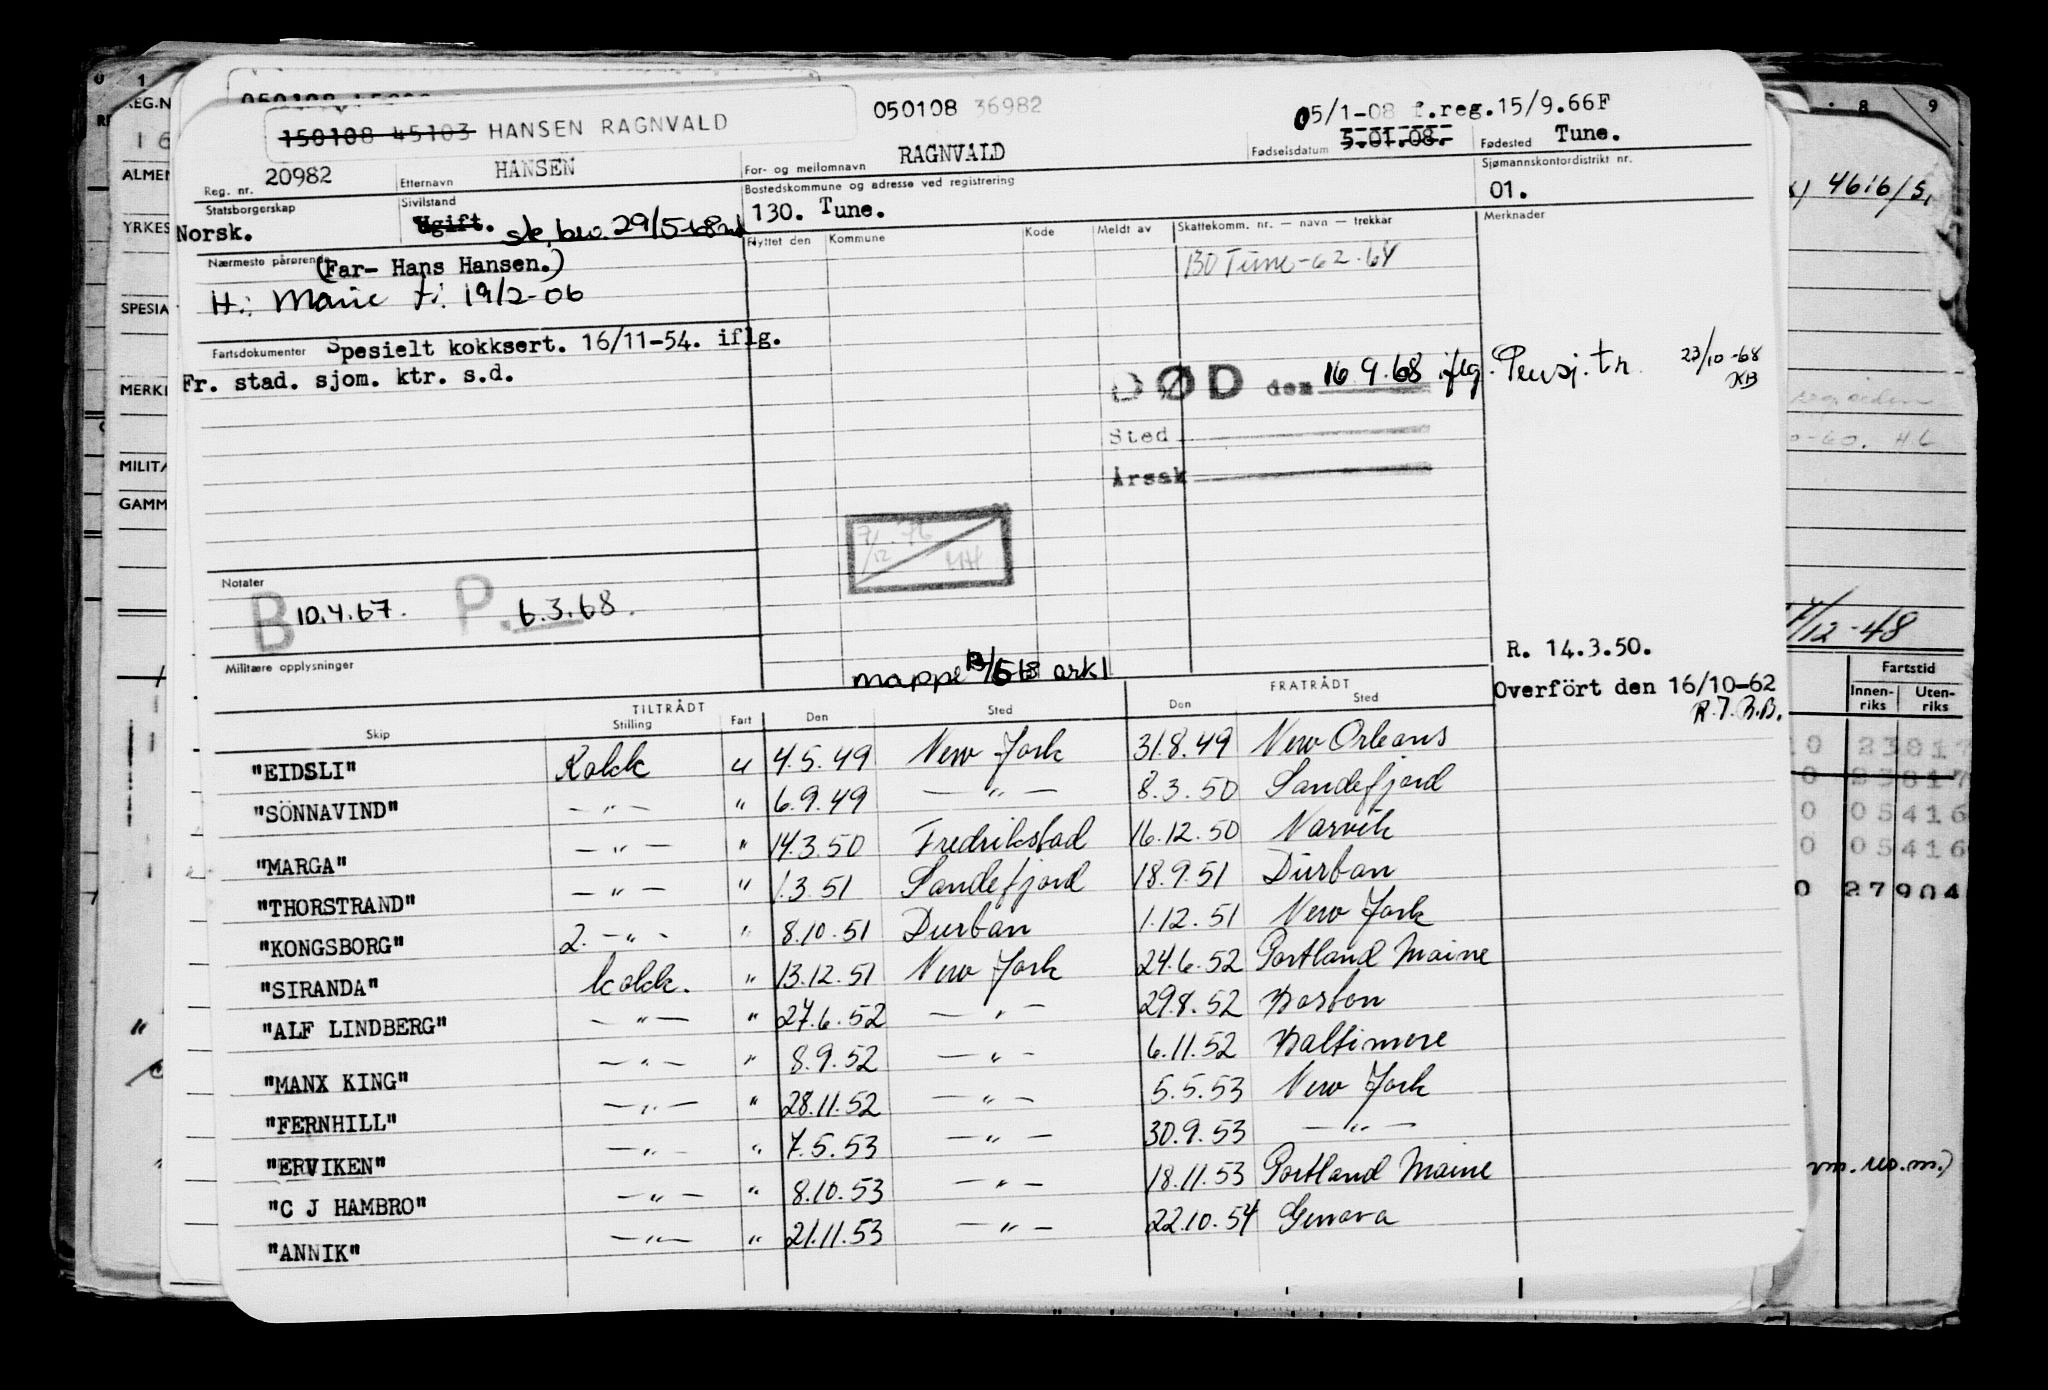 050108 36982
05/1-08 f.reg.15/9.66F
150108 45103 HANSEN RAGNVALD
Reg. nr. 20982 Etternavn HANSEN For- og mellomnavn RAGNVALD Fødselsdatum 5.01.08. Fødested Tune.
Statsborgerskap Norsk. Sivilstand Ugift. 29/5-68 Bostedskommune og adresse ved registrering 130. Tune. Sjømannskontordistrikt nr. 01.
Nærmeste pårørende (Far- Hans Hansen.)
H: Marie f: 19/2-06
Flyttet den Kommune Kode Meldt av Skattekomm. nr. — navn — trekkår Merknader
130 Tune-62.64
Fartsdokumenter Spesielt kokksert. 16/11-54. iflg.
Fr. stad. sjøm. ktr. s.d.
DØD den 16.9.68 iflg. Pensj.tr. 23/10-68
Sted
Årsak
7/12 76
Notater
B 10.4.67. P. 6.3.68.
Militære opplysninger
mappe ark 1
R. 14.3.50.
Overfört den 16/10-62
TILTRÅDT FRATRÅDT
Skip Stilling Fart Den Sted Den Sted
"EIDSLI" Kokk u 4.5.49 New York 31.8.49 New Orleans
"SÖNNAVIND" — " — " 6.9.49 — " — 8.3.50 Sandefjord
"MARGA" — " — " 14.3.50 Fredrikstad 16.12.50 Narvik
"THORSTRAND" — " — " 1.3.51 Sandefjord 18.9.51 Durban
"KONGSBORG" 2. — " - " 8.10.51 Durban 1.12.51 New York
"SIRANDA" kokk. " 13.12.51 New York 24.6.52 Portland Maine
"ALF LINDBERG" — " — " 27.6.52 — " — 29.8.52 Boston
"MANX KING" — " — " 8.9.52 — " — 6.11.52 Baltimore
"FERNHILL" — " — " 28.11.52 — " — 5.5.53 New York
"ERVIKEN" — " — " 7.5.53 — " — 30.9.53 — " —
"C J HAMBRO" — " — " 8.10.53 — " — 18.11.53 Portland Maine
"ANNIK" — " — " 21.11.53 — " — 22.10.54 Genova
0 1
REG.N
16
ALMEN
YRKES
SPESIA
MERKE
MILITÆ
GAMM
8 9
4616/S,
-60. H L
/12-48
Fartstid
Innen-riks Uten-riks
0 23017
0 23017
0 05416
0 05416
0 27904
vm. res. m.)